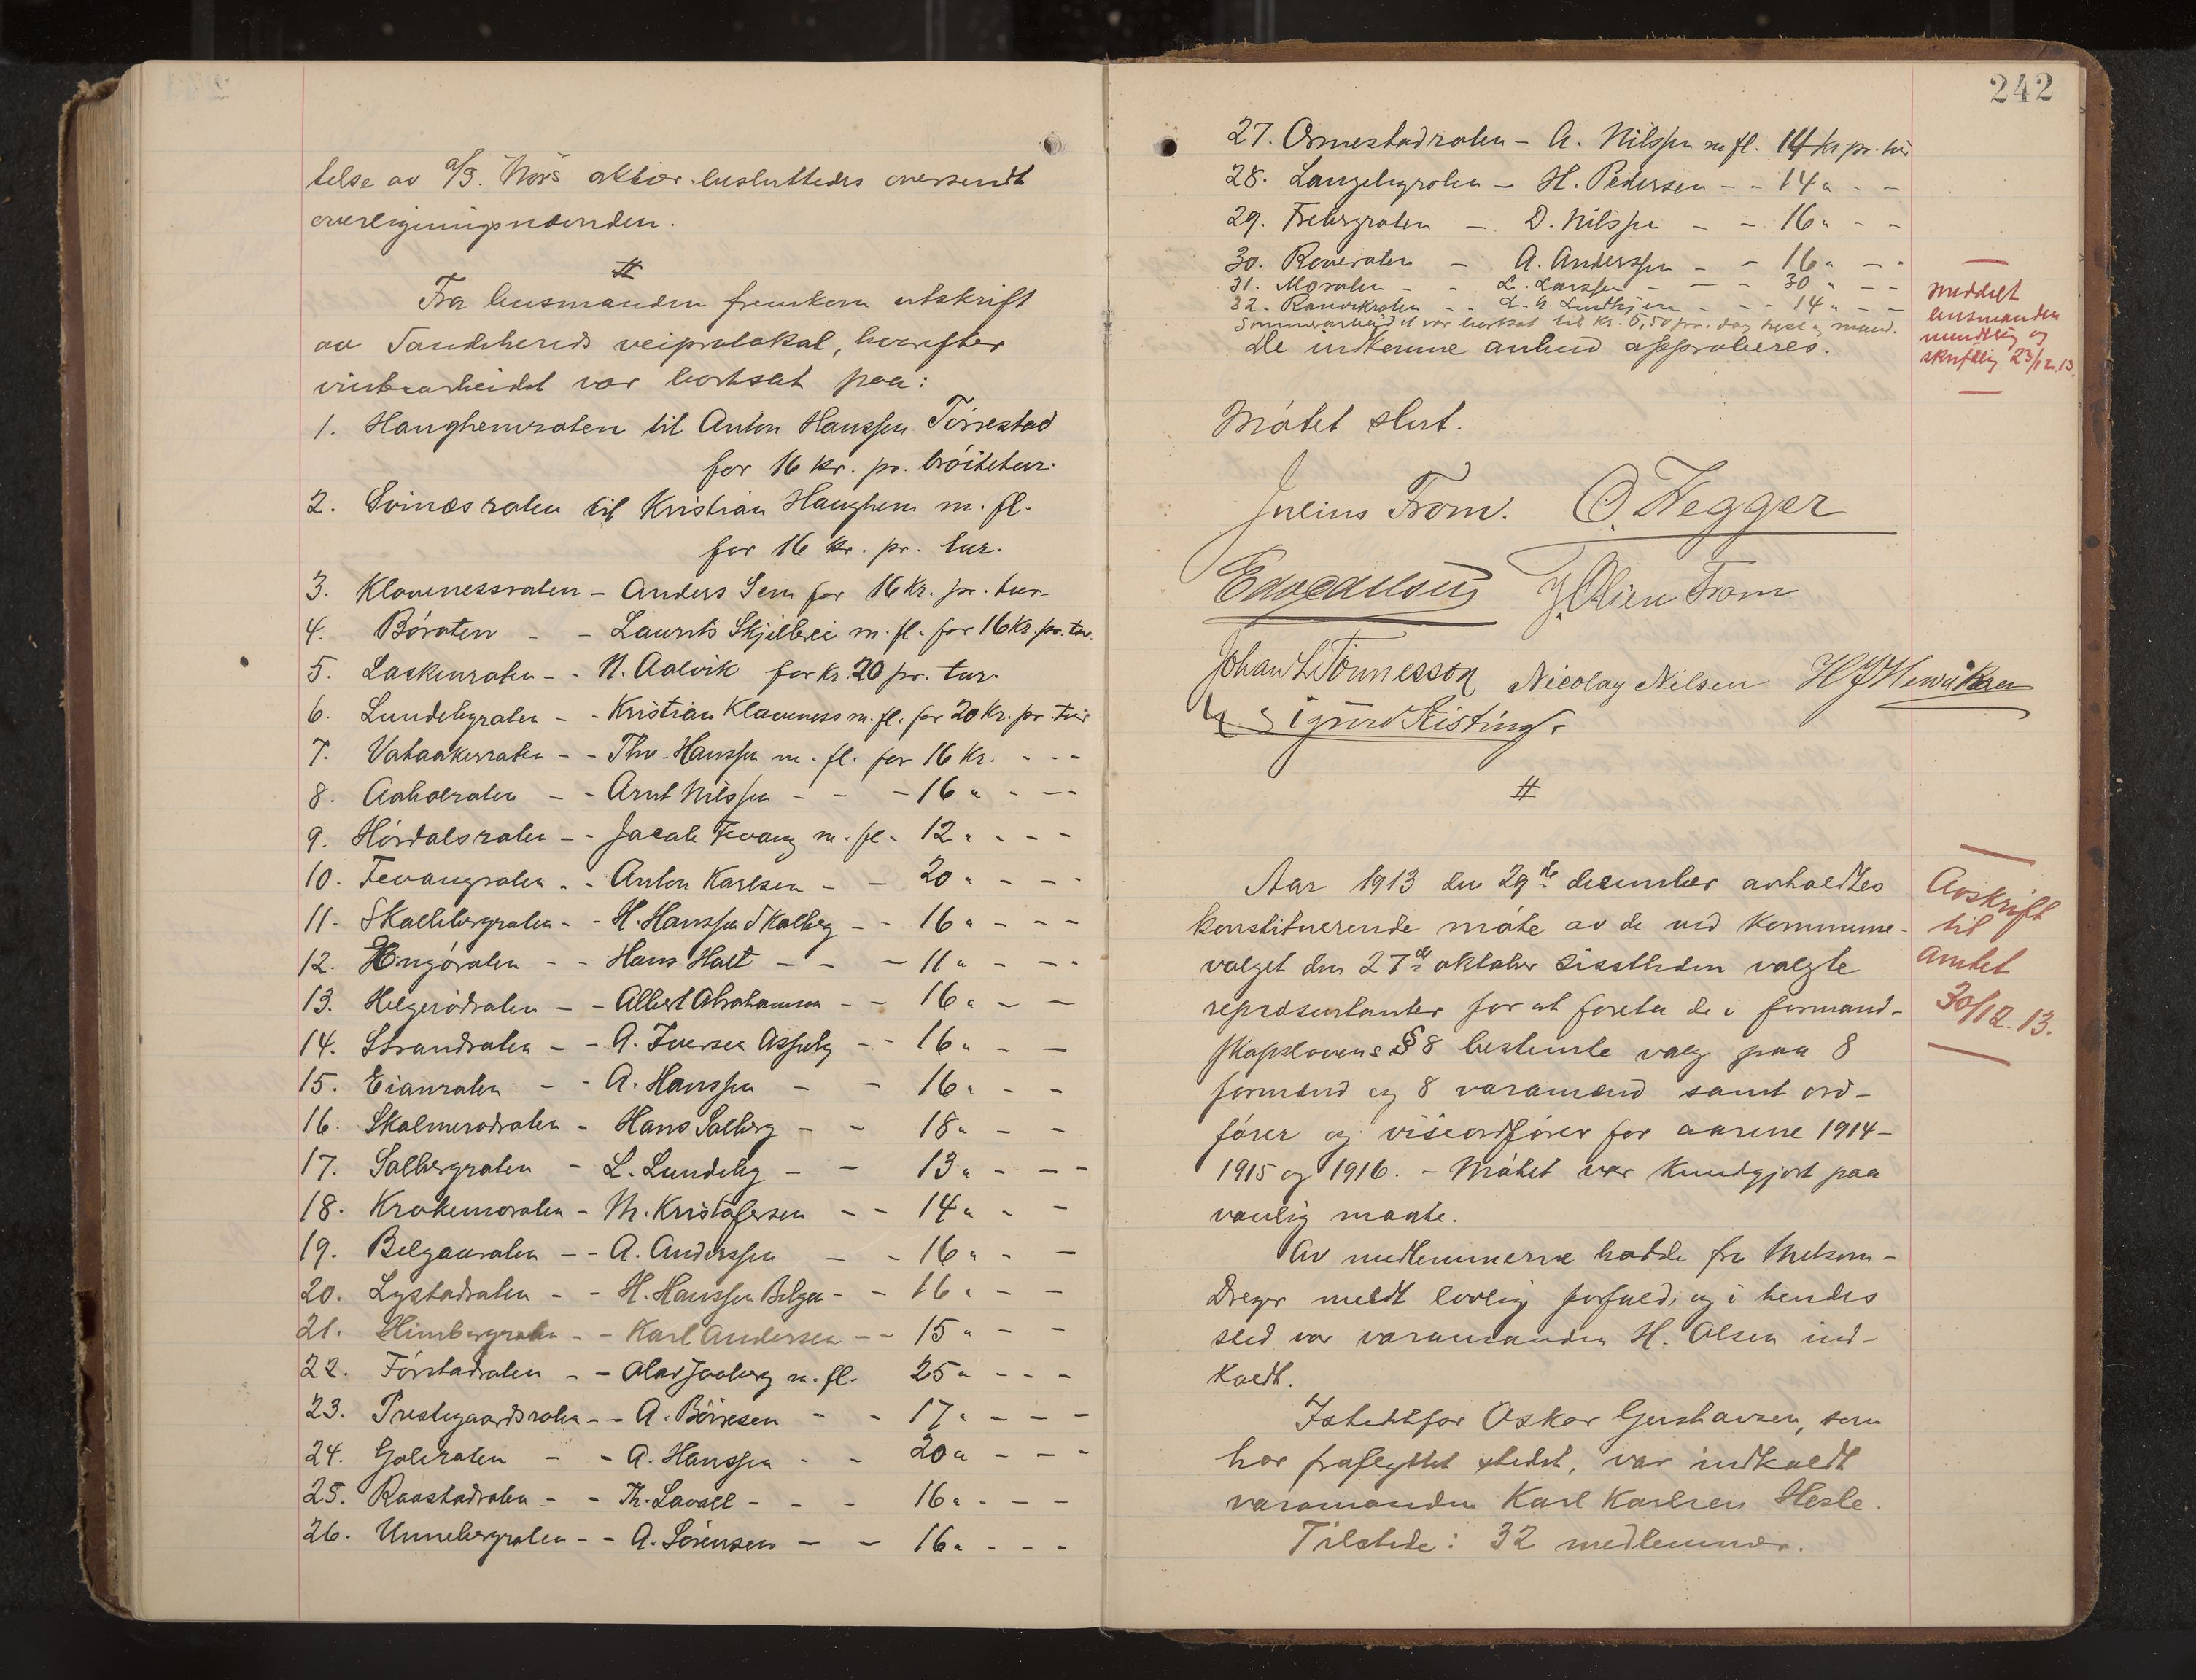 telse av A/S. Nors aktier besluttedes oversendt
overligningsnævnden.
#
Fra lensmanden fremkom utskrift
av Sandehereds veiprotokol, hvorefter
vinterarbeidet var bortsat paa:
1. Haughemroten til Anton Hanssen Törrestad
for 16 kr. pr. bröitetur.
2. Svinæsroten til Kristian Haughem m. fl.
for 16 kr. pr. tur.
3. Klavenessroten - Anders Sem for 16 Kr. pr. tur
4. Böroten - - Laurits Skjelbrei m. fl. for 16 Kr. pr. tur.
5. Laskenroten - - N. Aalvik for Kr. 20 pr. tur.
6. Lundebyroten - - Kristian Klaveness m. fl. for 20 Kr. pr. tur
7. Vataakerroten - - Thv. Hanssen m. fl. for 16 Kr. - - -
8. Aaholroten - - Arnt Nilssen - - - 16 " - - -
9. Hördalsroten - - Jacob Fevang m. fl. 12 " - - -
10. Fevangroten - - Anton Karlsen - - 20 " - - -
11. Skalbbergroten - - H. Hanssen Skalberg - - 16 " - - -
12. - - Hans Holt - - - 11 " - - -
13. Helgerödroten - - Albert Abrahamsen - - 16 " - -
14. Strandroten - - A. Iversen Asperly - - 16 " - -
15. Eianroten - - A. Hanssen - - 16 " - -
16. Skolmerodroten - Hans Solberg - - 18 " - -
17. Solbergroten - L. Lundeby - - 13 " - - -
18. Krokemoroten - M. Kristofersen - - 14 " - -
19. Belgauroten - - A. Anderssen - - 16 " - -
20. Lystadroten - - H. Hanssen Belgau - - 16 " - -
21. Himbergroten - - Karl Andersen - - 15 " - -
22. Förstadroten - - Olav Joaberg m. fl. 25 " - - -
23. Prestegaardsroten - - A. Börresen - - 17 " - - -
24. Goliroten - - A. Hanssen - - 20 " - - -
25. Raastadroten - - Th. Lavoll - - - 16 " - - -
26. Unnebergroten - - A. Sörensen - - 16 " - - -
242
27. Ormestadroten - A. Nilssen m fl. 14 kr pr. tur
28. Langebyroten - H. Pedersen - - 14 " - -
29. Frebergroten - D. Nilssen - - 16 " - -
30. Roveroten - A. Anderssen - - 16 " - -
31. Moroten - - L. Larssen - - - 30 " - -
32. Ranvikroten - - - - 14 " - -
Sommerarbeidet var bortsat til Kr. 5,50 pr. dag hest og mand.
De indkomne anbud approberes.
meddelt
lensmanden
mundtlig og
skriftlig 23/12.13.
Mötet slut.
Julius Trom. O. Hegger
J. Olsen From
Johan L. Tönnesson Nicolay Nilsen H J Henriksen
Sigurd Risting.
#
Aar 1913 den 29de december avholdtes
konstituerende möte av de ved kommune-
valget den 27de oktober sisstleden valgte
repræsentanter for at foreta de i formand-
skapslovens § 8 bestemte valg paa 8
formænd og 8 varamænd samt ord-
förer og viseordförer for aarene 1914-
1915 og 1916. - Mötet var kundgjort paa
vanlig maate.
Avskrift
til
amtet
30/12. 13.
Av medlemmerne hadde fru Melsom-
Dreyer meldt lovlig forfald, og i hendes
sted var varamanden H. Olsen ind-
kaldt.
Istedetfor Oskar Gershavsen, som
har fraflyttet stedet, var indkaldt
varamanden Karl Karlsen Hesle.
Tilstede: 32 medlemmer.